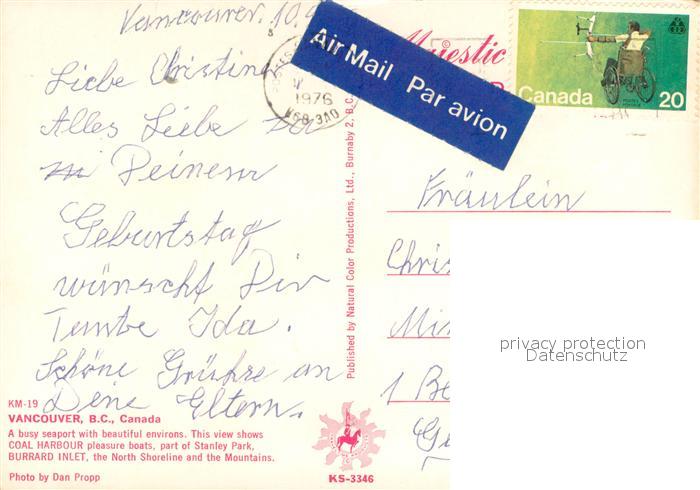 Vancouver. 10.9
Liebe Christine
Alles Liebe zu
Deinem
Geburtstag
wünscht Dir
Tante Ida.
Schöne Grühse an
Deine Eltern.
KM-19
VANCOUVER, B.C., Canada
A busy seaport with beautiful environs. This view shows
COAL HARBOUR pleasure boats, part of Stanley Park,
BURRARD INLET, the North Shoreline and the Mountains.
Photo by Dan Propp
Published by Natural Color Productions, Ltd., Burnaby 2, B.C.
Majestic
Air Mail Par avion
1976
V6B 3A0
Canada 20
POSTES POSTAGE
Fräulein
Chris
1 Be
privacy protection
Datenschutz
KS-3346